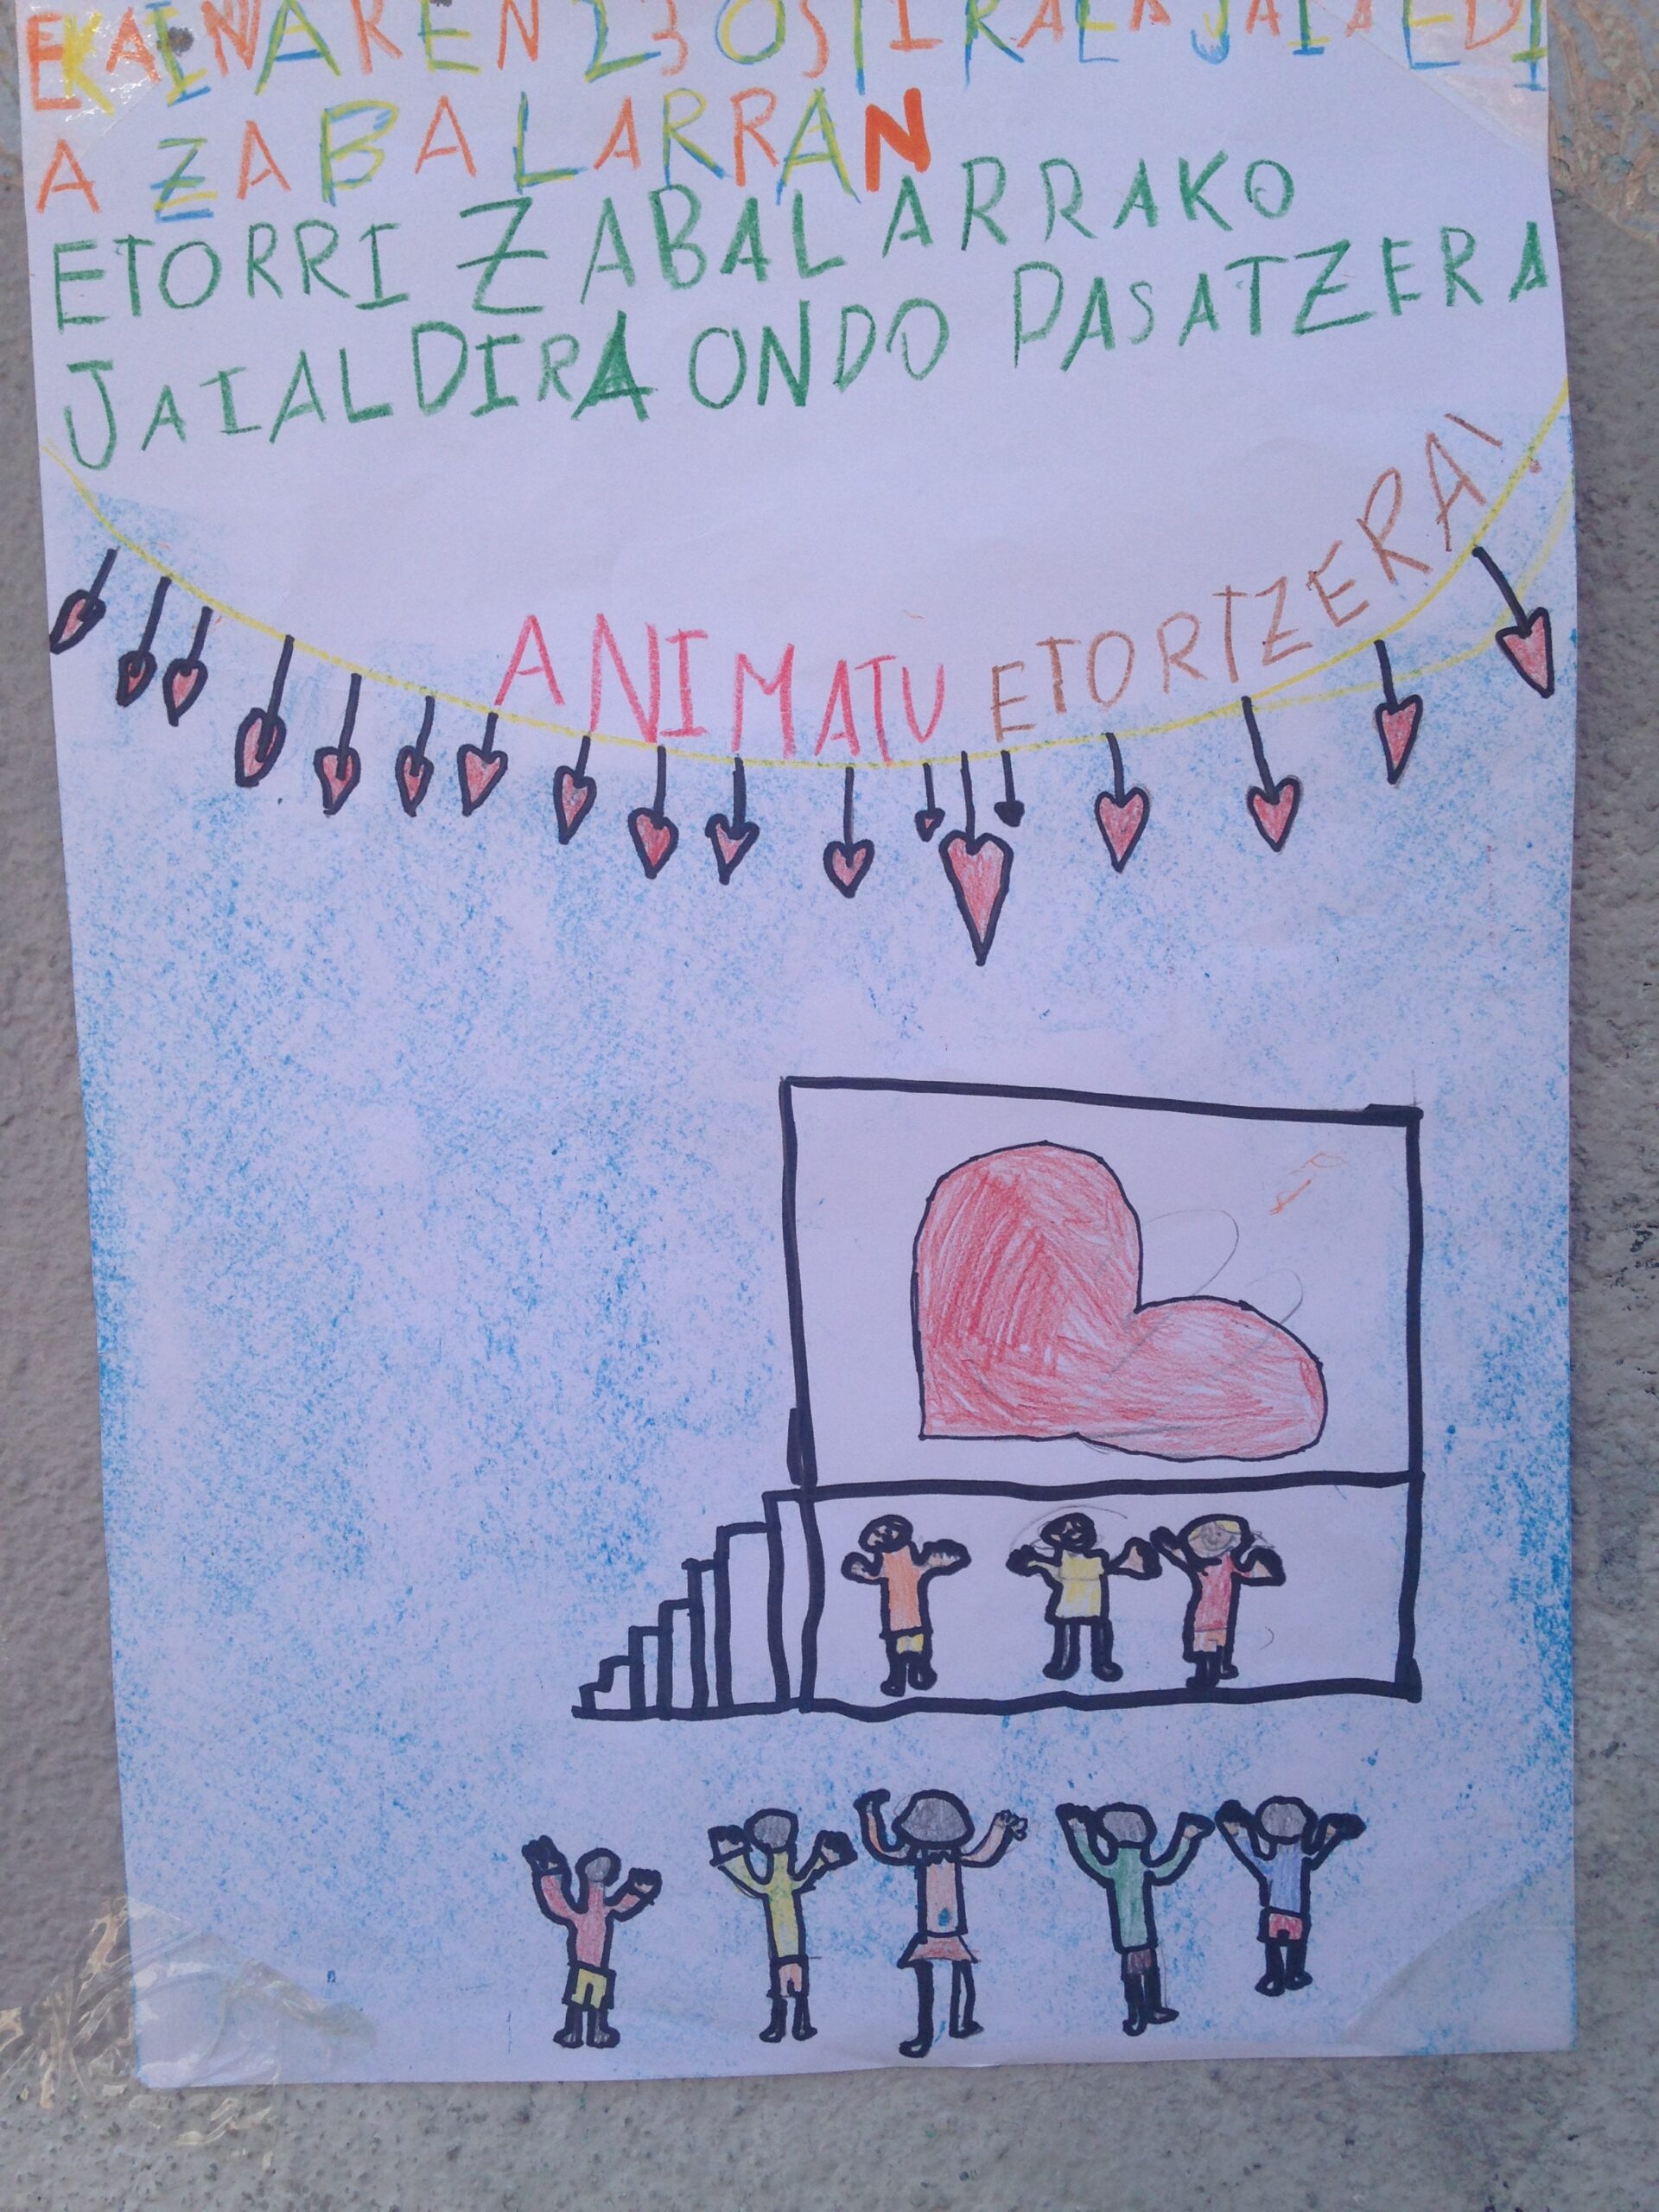 EKAINAREN 23 OSTIRALA JAIALDI
A ZABALARRAN
ETORRI ZABALARRAKO
JAIALDIRA ONDO PASATZERA
ANIMATU ETORTZERA!